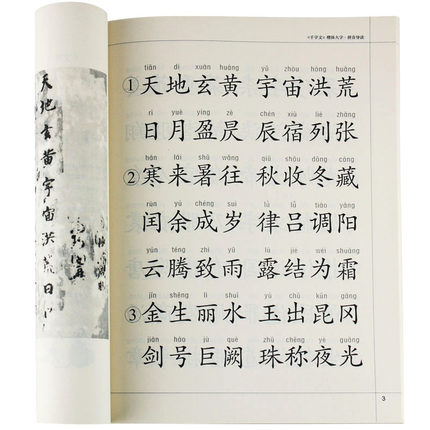 《千字文》楷体大字·拼音导读
tiān dì xuán huáng yǔ zhòu hóng huāng
①天地玄黄 宇宙洪荒
rì yuè yíng zè chén xiù liè zhāng
日月盈昃 辰宿列张
hán lái shǔ wǎng qiū shōu dōng cáng
②寒来暑往 秋收冬藏
rùn yú chéng suì lǜ lǚ tiáo yáng
闰余成岁 律吕调阳
yún téng zhì yǔ lù jié wéi shuāng
云腾致雨 露结为霜
jīn shēng lì shuǐ yù chū kūn gāng
③金生丽水 玉出昆冈
jiàn hào jù què zhū chēng yè guāng
剑号巨阙 珠称夜光
3
天地玄黄宇宙洪荒日